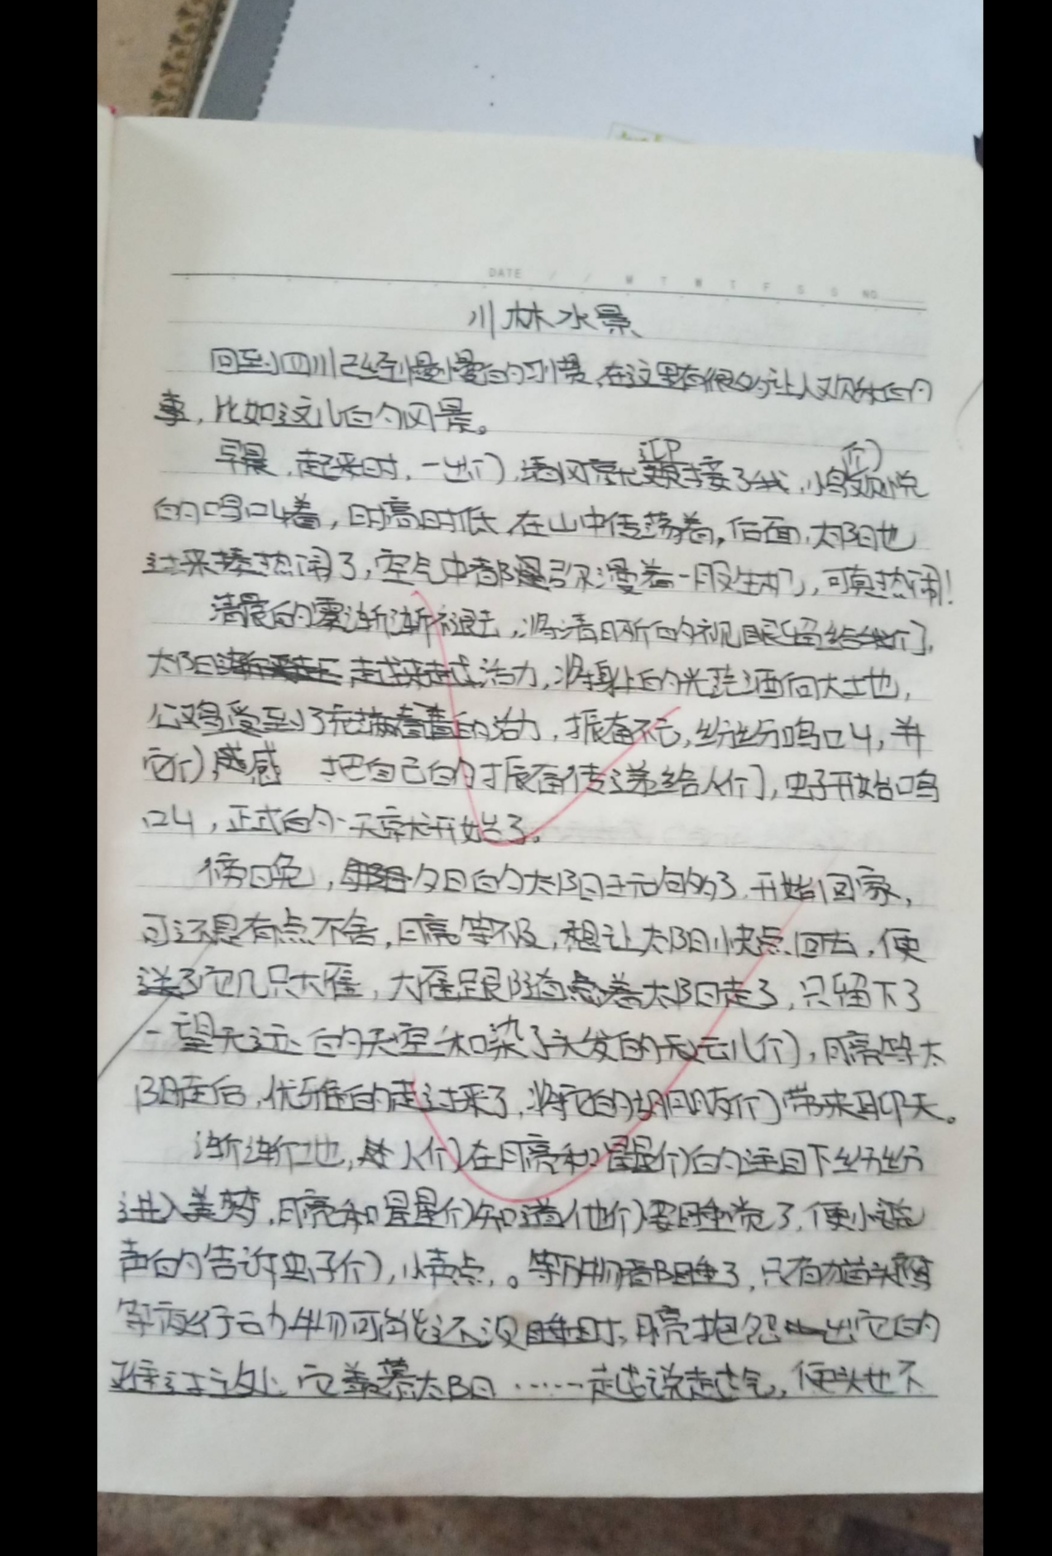 DATE / / M T W T F S S NO.
川林水景
回到四川已经慢慢的习惯,在这里有很多让人欢愉的
事,比如这儿的风景。
迎 们
早晨,起来时,一出门,凉风就迎接了我,小鸟欢悦
的鸣叫着,时高时低,在山中传荡着,后面,太阳也
过来凑热闹了,空气中都弥漫着一股生机,可真热闹!
清晨的雾渐渐褪去,将清晰的视眼留给们,
太阳越来越活力,将身上的光芒洒向大土地,
公鸡受到了充满着的活力,振奋不已,纷纷鸣叫,并
它们 感 把自己的振奋传递给人们,虫子开始鸣
叫,正式的一天就开始了。
傍晚,夕日的太阳玩够了,开始回家,
可还是有点不舍,月亮等不及,想让太阳快点回去,便
送了它几只大雁,大雁跟随着太阳走了,只留下了
一望无远的天空和染了头发的云儿们,月亮等太
阳走后,优雅的走过来了,将它的朋友们带来聊天。
渐渐地,人们在月亮和星星们的注目下纷纷
进入美梦,月亮和星星们知道他们要睡觉了,便小
声的告诉虫子们,小声点,。等万物都睡了,只有猫头鹰
等夜行动物可能还没睡时,月亮抱怨出它的
难过之处,它羡慕太阳……越说越气,便头也不